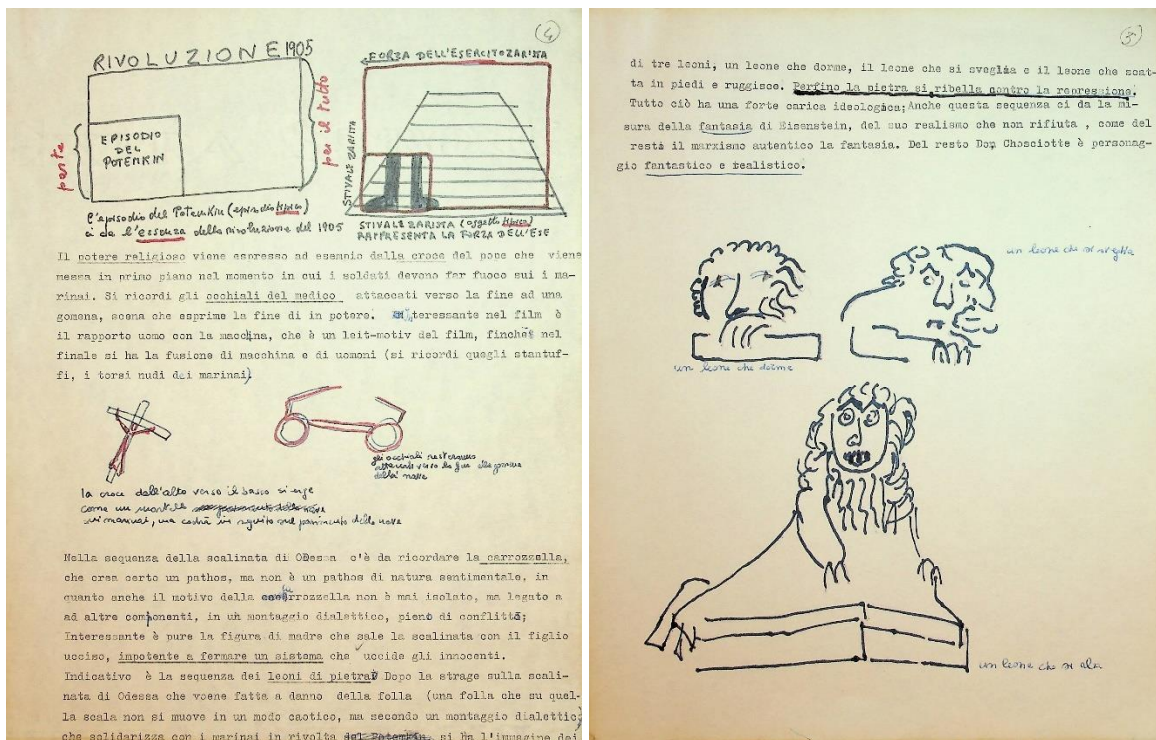 4
RIVOLUZIONE 1905
parte
EPISODIO
DEL
POTEMKIN
per il tutto
FORZA DELL'ESERCITO ZARISTA
STIVALE ZARISTA
l'episodio del Potemkin (episodio tipico)
ci da l'essenza della rivoluzione del 1905
STIVALE ZARISTA (oggetto tipico)
RAPPRESENTA LA FORZA DELL'ESE
Il potere religioso viene espresso ad esempio dalla croce del pope che viene
messa in primo piano nel momento in cui i soldati devono far fuoco sui i ma-
rinai. Si ricordi gli occhiali del medico attaccati verso la fine ad una
gomena, scena che esprime la fine di in potere. Interessante nel film è
il rapporto uomo con la macchina, che è un leit-motiv del film, finchè nel
finale si ha la fusione di macchina e di uomini (si ricordi quegli stantuf-
fi, i torsi nudi dei marinai)
gli occhiali resteranno
attaccati verso la fine alla gomena
della nave
la croce dall'alto verso il basso si erge
come un
sui marinai, ma cadrà in seguito sul pavimento della nave
Nella sequenza della scalinata di Odessa c'è da ricordare la carrozzella,
che crea certo un pathos, ma non è un pathos di natura sentimentale, in
quanto anche il motivo della carrozzella non è mai isolato, ma legato a
ad altre componenti, in un montaggio dialettico, pieno di conflitto;
Interessante è pure la figura di madre che sale la scalinata con il figlio
ucciso, impotente a fermare un sistema che uccide gli innocenti.
Indicativo è la sequenza dei leoni di pietra Dopo la strage sulla scali-
nata di Odessa che voene fatta a danno della folla (una folla che su quel-
la scala non si muove in un modo caotico, ma secondo un montaggio dialettic
che solidarizza con i marinai in rivolta del Potemkin si ha l'immagine dei
5
di tre leoni, un leone che dorme, il leone che si sveglia e il leone che scat-
ta in piedi e ruggisce. Perfino la pietra si ribella contro la repressione.
Tutto ciò ha una forte carica ideologica; Anche questa sequenza ci da la mi-
sura della fantasia di Eisenstein, del suo realismo che non rifiuta , come del
resto il marxismo autentico la fantasia. Del resto Don Chosciotte è personag-
gio fantastico e realistico.
un leone che si sveglia
un leone che dorme
un leone che si alza